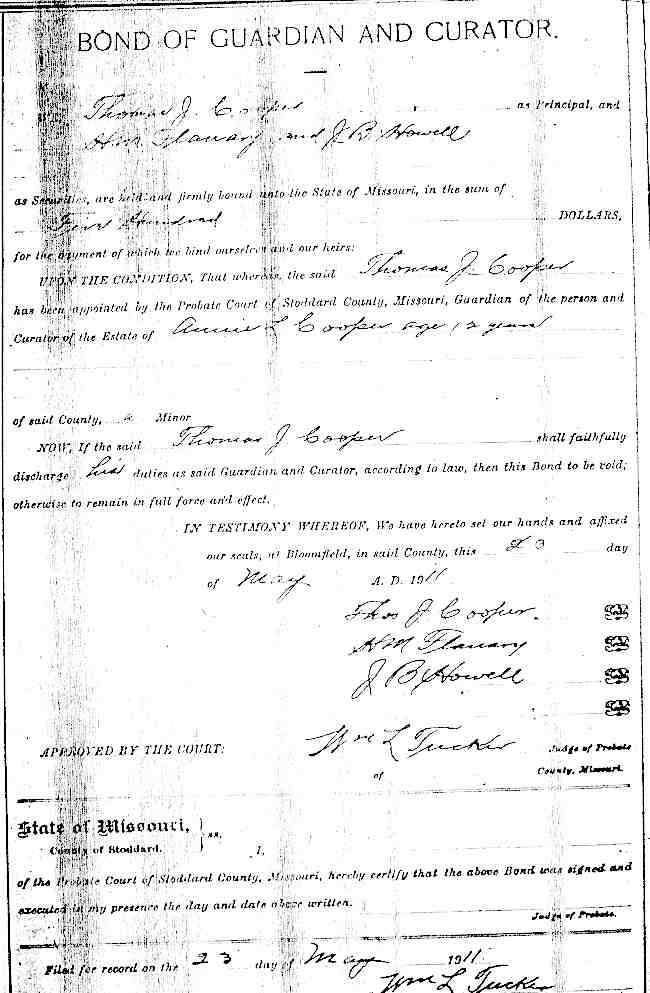 BOND OF GUARDIAN AND CURATOR.
Thomas J. Cooper as Principal, and
H.M. Flanary and J B Howell
as Securities, are held and firmly bound unto the State of Missouri, in the sum of
Hundred DOLLARS,
for the payment of which we bind ourselves and our heirs:
UPON THE CONDITION, That whereas, the said Thomas J. Cooper
has been appointed by the Probate Court of Stoddard County, Missouri, Guardian of the person and
Curator of the Estate of Annie L Cooper age 12 years
of said County, a Minor
NOW, If the said Thomas J Cooper shall faithfully
discharge his duties as said Guardian and Curator, according to law, then this Bond to be void;
otherwise to remain in full force and effect.
IN TESTIMONY WHEREOF, We have hereto set our hands and affixed
our seals, at Bloomfield, in said County, this 23 day
of May A. D. 1911
Thos J Cooper.
H M Flanary
J B Howell
APPROVED BY THE COURT: Wm L Tucker Judge of Probate
of County, Missouri.
State of Missouri, } ss.
County of Stoddard. I,
of the Probate Court of Stoddard County, Missouri, hereby certify that the above Bond was signed and
executed in my presence the day and date above written.
Judge of Probate.
Filed for record on the 23 day of May 1911.
Wm L Tucker